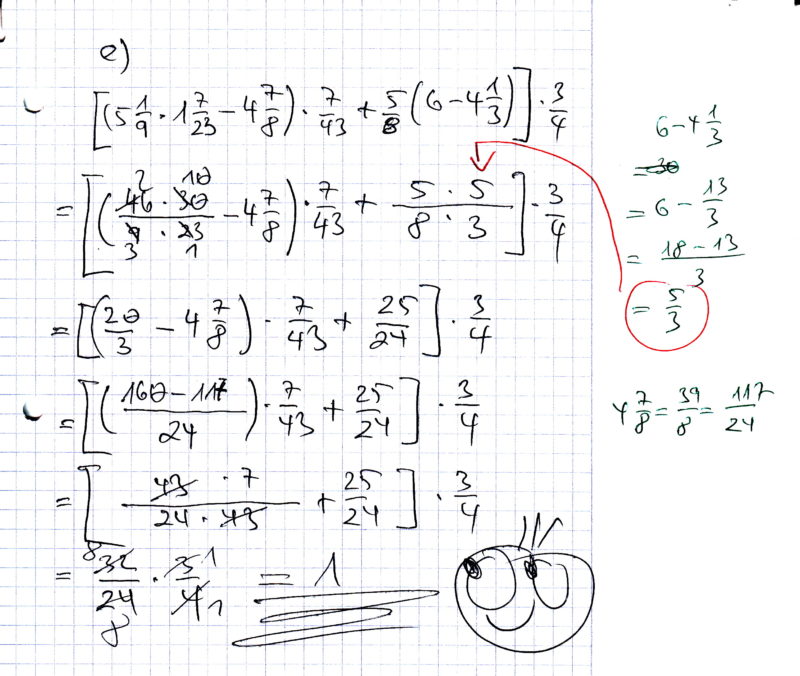 e)
[(5 1/9 · 1 7/23 − 4 7/8) · 7/43 + 5/8 (6 − 4 1/3)] · 3/4
= [(46 · 30 / 9 · 23 − 4 7/8) · 7/43 + 5 · 5 / 8 · 3] · 3/4
2 10
3 1
= [(20/3 − 4 7/8) · 7/43 + 25/24] · 3/4
= [(160 − 117 / 24) · 7/43 + 25/24] · 3/4
= [43 · 7 / 24 · 43 + 25/24] · 3/4
= 32/24 · 3/4 = 1
8 1
8 1
6 − 4 1/3
= 30
= 6 − 13/3
= 18 − 13 / 3
= 5/3
4 7/8 = 39/8 = 117/24